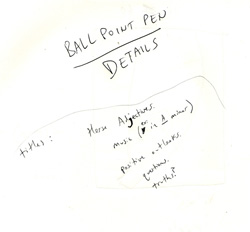 BALL POINT PEN
DETAILS
titles: Horse Adjectives.
music (or in A minor)
positive outlooks.
questions.
truths?